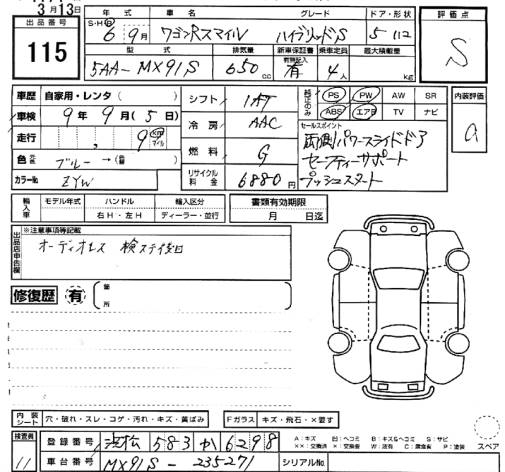 3月13日
出品番号
115
年式 車名 グレード ドア・形状
S・H・R 6 9月 ワゴンRスマイル ハイブリッドS 5 112
型式 排気量 新車保証書 乗車定員 最大積載量
5AA-MX91S 650cc 有 4人 kg
評価点
S
車歴 自家用・レンタ( )
車検 9年 9月(5日)
走行
色 ブルー→( )
カラーNo. ZYW
シフト IAT
冷房 AAC
燃料 G
リサイクル料金 6880円
純正のみ PS PW AW SR
ABS エアB TV ナビ
セールスポイント
両側パワースライドドア
セーフティーサポート
プッシュスタート
内装評価
a
輸入車 モデル年式 ハンドル 輸入区分
右H・左H ディーラー・並行
書類有効期限
月 日迄
出品店申告欄
※注意事項等記載
オーディオレス
修復歴 有 箇所
内装シート 穴・破れ・スレ・コゲ・汚れ・キズ・黄ばみ
Fガラス キズ・飛石・×要す
検査員 11
登録番号 浜松 583 か 6298
車台番号 MX91S-235271
シリアルNo.
A:キズ U:ヘコミ B:キズ&ヘコミ S:サビ
スペア